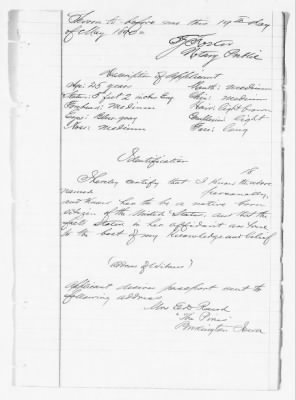 Sworn to before me this 19th day
of May 1890
Foster
Notary Public
Description of Applicant
Age: 25 years
Mouth: medium
Stature: 5 feet 2 inches Eng
Chin: medium
Forehead: Medium
Hair: light brown
Eyes: Blue gray
Complexion: light
Nose: Medium
Face: Long
Identification
I hereby certify that I know the above
named personally,
and know her to be a native born
citizen of the United States, and that the
facts stated in her affidavit are true
to the best of my knowledge and belief
(Address of Witness)
Applicant desires passport sent to
following address
Mrs Ed
"The Pines"
Iowa